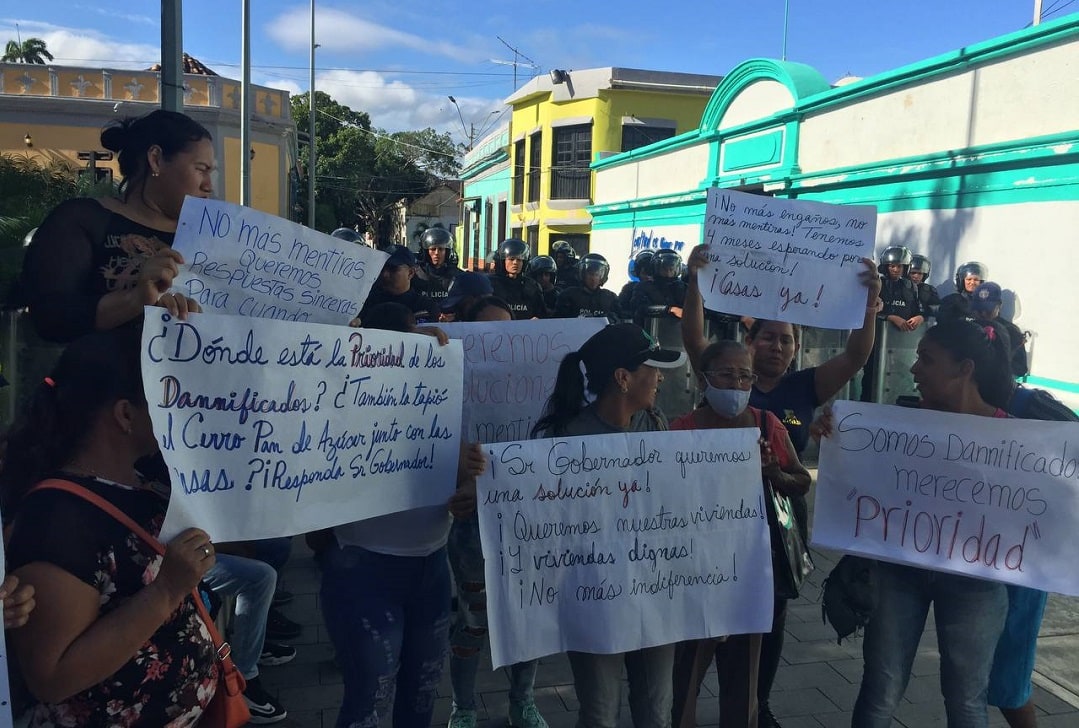 ¡No más engaños, no
más mentiras! Tenemos
4 meses esperando por
una solución!
¡Casas ya!
¡No más mentiras
Queremos
Respuestas sinceras
Para cuando
¿Dónde está la Prioridad de los
Dannificados? ¿También la tapió
el Cerro Pan de Azúcar junto con las
casas?¡Responda Sr Gobernador!
eremos
oluciones
mentir
¡Sr Gobernador queremos
una solución ya!
¡Queremos nuestras viviendas!
¡Y viviendas dignas!
¡No más indiferencia!
Somos Dannificado
merecemos
"Prioridad"
POLICÍA
POLICÍA